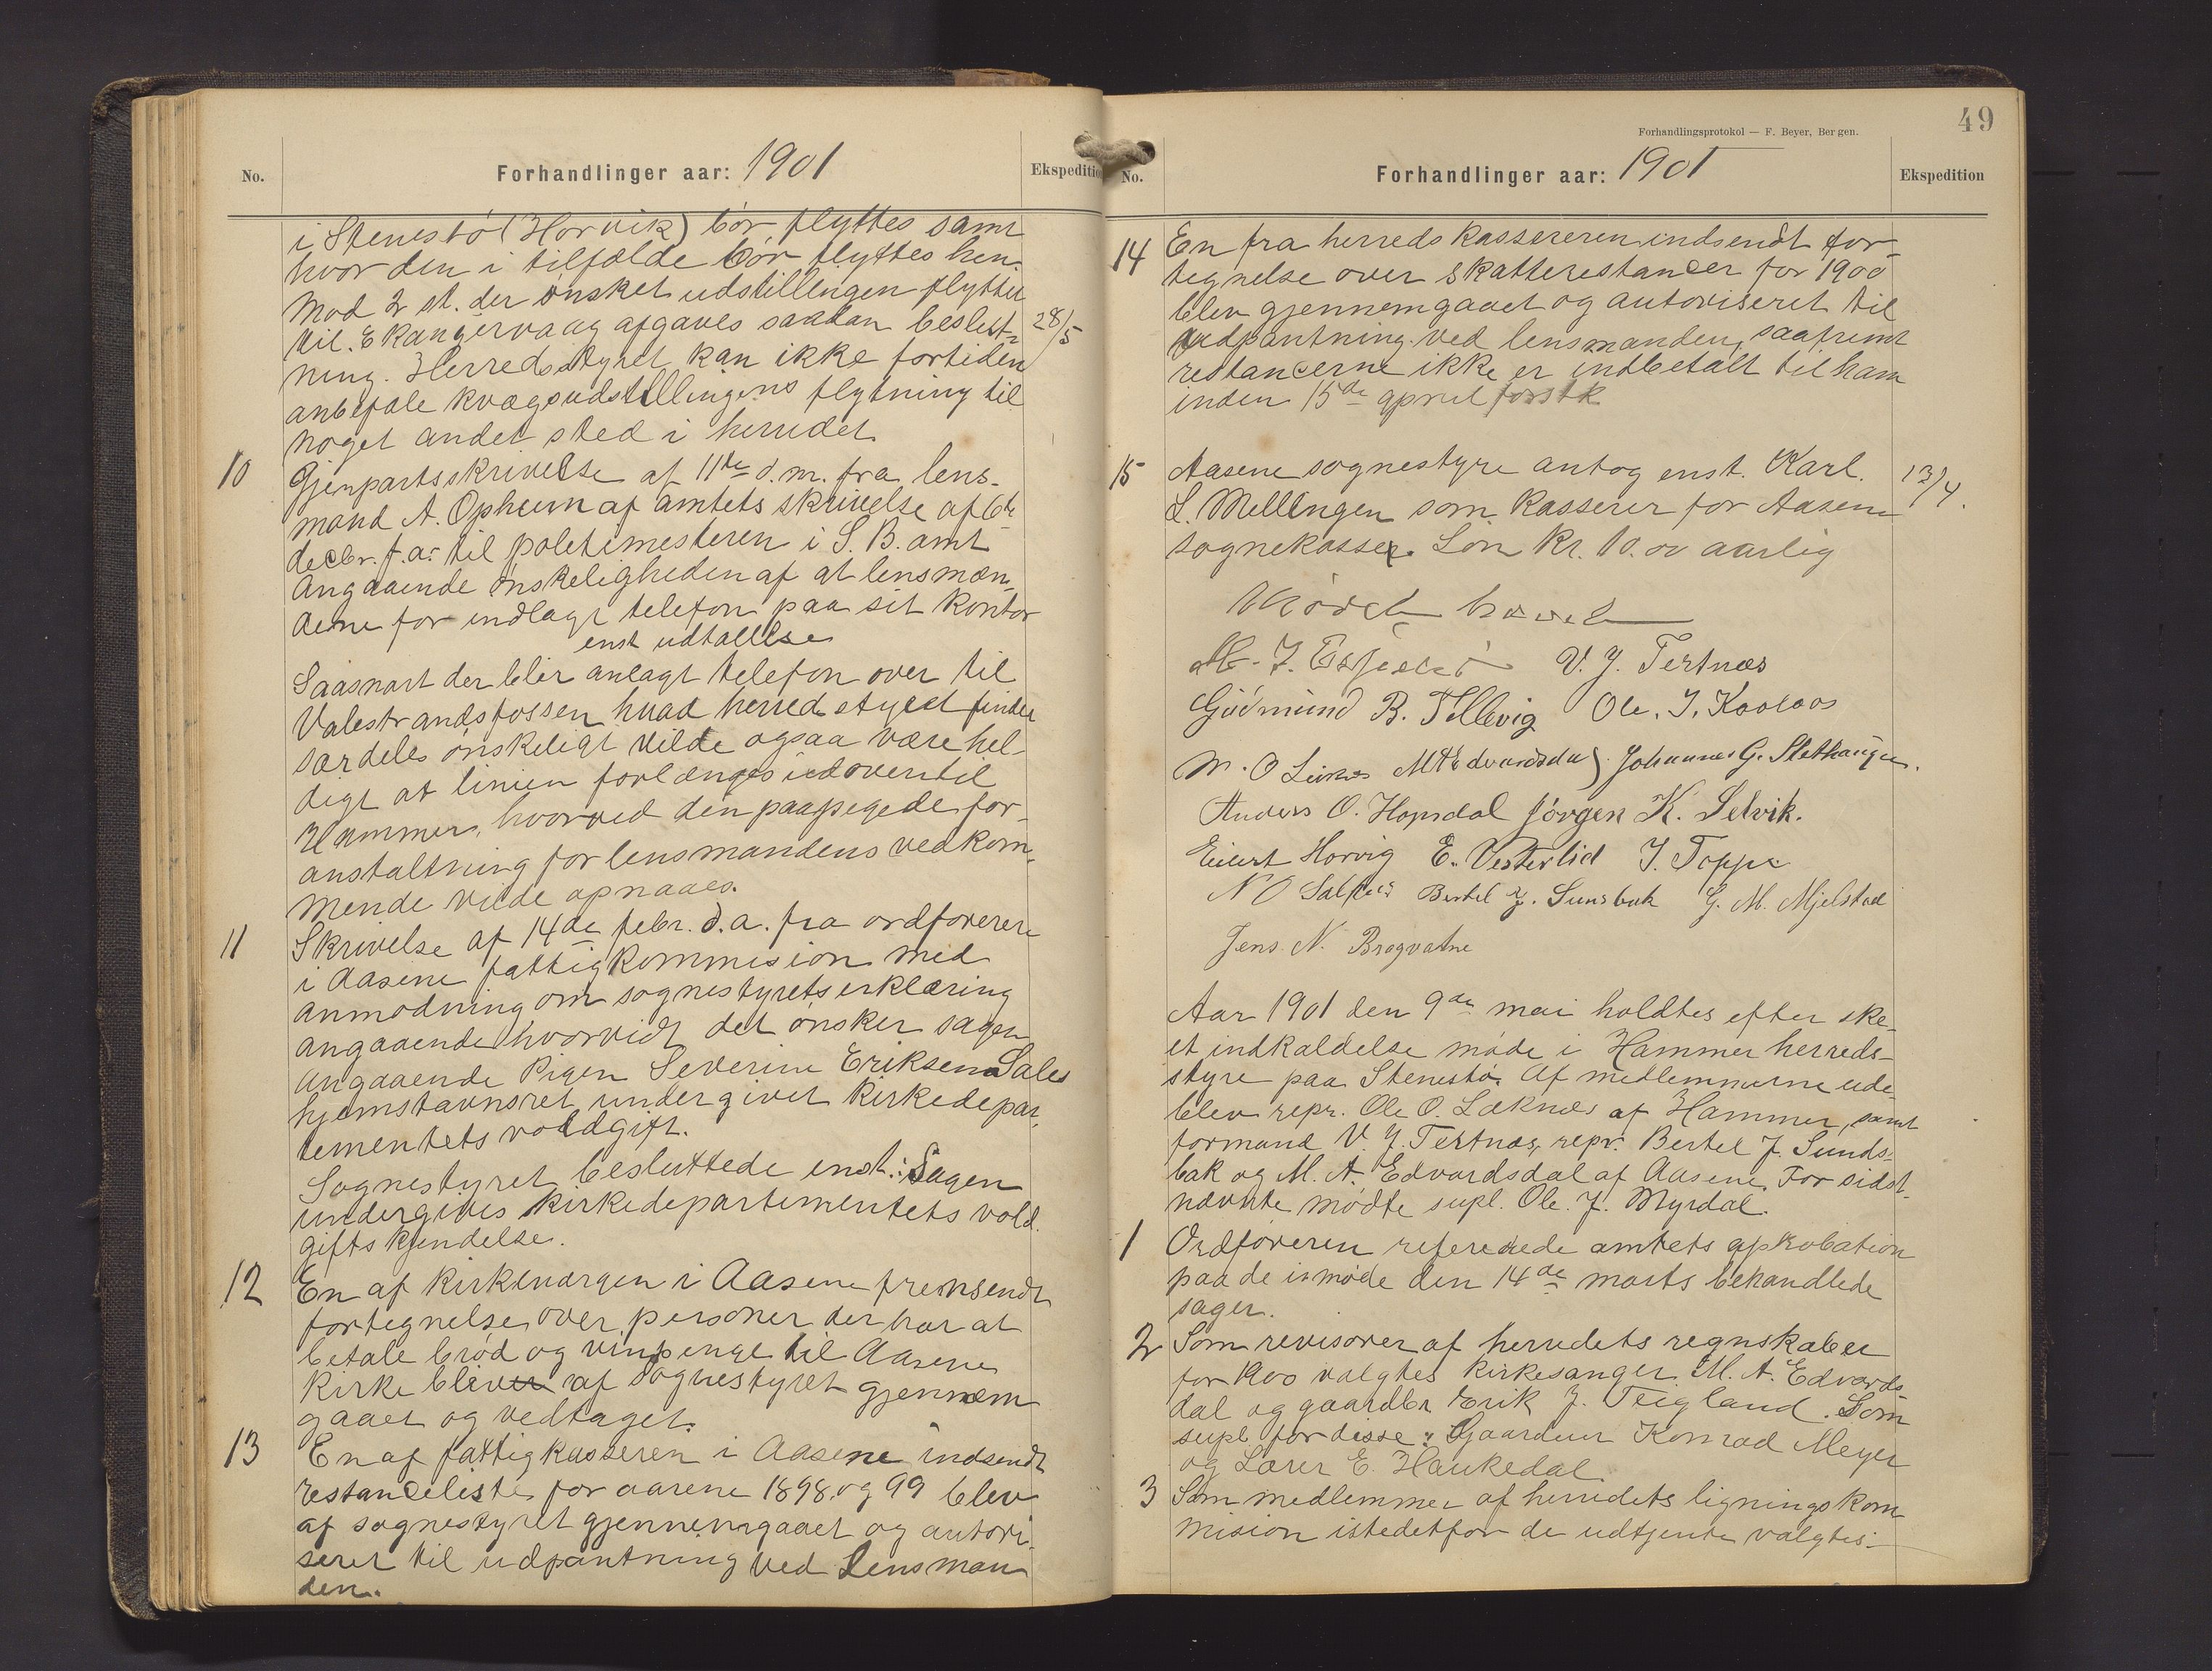 No.
Forhandlinger aar: 1901
Ekspeditio
i Stenestø (Horvik) bør flyttes samt
hvor den i tilfælde bør flyttes hen.
Mod 2 st. der ønsket udstillingen flyttet
til Ekangervaag afgaves saadan beslut-
28/5
ning. Herredsstyret kan ikke fortiden
anbefale kvægudstillingens flytning til
noget andet sted i herredet.
10
Gjenpartsskrivelse af 11te d.m. fra lens-
mand A. Opheim af amtets skrivelse af 6te
decbr. f.a. til politimesteren i S. B. amt
angaaende ønskeligheden af at lensmæn-
dene for indlagt telefon paa sit kontor
enst udtallelse
Saasnart der blir anlagt telefon over til
Valestrandsfossen hvad herredsstyret finder
særdeles ønskeligt vilde ogsaa være hel-
digt at linien forlænges indover til
Hammer, hvorved den paapegede for-
anstaltning for lensmandens vedkom-
mende vilde opnaaes.
11
Skrivelse af 14de febr. d.a. fra ordførerer
i Aasene fattigkommision med
anmodning om sognestyrets erklæring
angaaende hvorvidt det ønsker sagen
angaaende Pigen Severine Eriksen Sales
hjemstavnsret undergivet kirkedepar-
tementets voldgift.
Sognestyret besluttede enst.: Sagen
undergives kirkedepartementets vold-
giftskjendelse.
12
En af kirkeværgen i Aasene fremsendt
fortegnelse over personer der har at
betale brød og vinpenge til Aasene
kirke bliver af sognestyret gjennem
gaaet og vedtaget.
13
En af fattigkasseren i Aasene indsendt
restanceliste for aarene 1898 og 99 blev
af sognestyret gjennemgaaet og autori-
seret til udpantning ved Lensman
den.
49
Forhandlingsprotokol — F. Beyer, Bergen.
No.
Forhandlinger aar: 1901
Ekspedition
14
En fra herredskassereren indsendt for-
tegnelse over skatterestancer for 1900
blev gjennemgaaet og autoriseret til
udpantning ved lensmanden, saafremt
restancerne ikke er indbetalt til ham
inden 15de april førstk
15
Aasene sognestyre antog enst. Karl
13/4.
L. Mellingen som kasserer for Aasene
sognekasse. Løn Kr. 10.00 aarlig
Mødet hævet
V. J. Tertnæs
Gudmund B. Tellevig Ole. J.
M. O M A Edvardsdal Johannes G. Slethaugen.
Anders O. Hopsdal Jørgen K. Selvik.
Eivert Horvig E. Vesterlid J. Toppe
N O Bertel J. Sunsbak G. M. Mjelstad
Jens N. Brogvatne
Aar 1901 den 9de mai holdtes efter ske-
et indkaldelse møde i Hammer herreds-
styre paa Stenestø. Af medlemmerne ude-
blev repr. Ole O. Læknes af Hammer, samt
formand V. J. Tertnæs, repr. Bertel J. Sunds-
bak og M. A. Edvardsdal af Aasene. For sidst-
nævnte mødte supl. Ole J. Myrdal.
1
Ordføreren refererede amtets approbation
paa de i møde den 14de marts behandlede
sager.
2
Som revisorer af herredets regnskaber
for 1900 valgtes kirkesanger M. A. Edvards-
dal og gaardbr Erik J. Teigland. Som
supl for disse: Gaardeier Konrad Meyer
og Lærer E. Haukedal.
3
Som medlemmer af herredets ligningskom
mision istedetfor de udtjente valgtes: